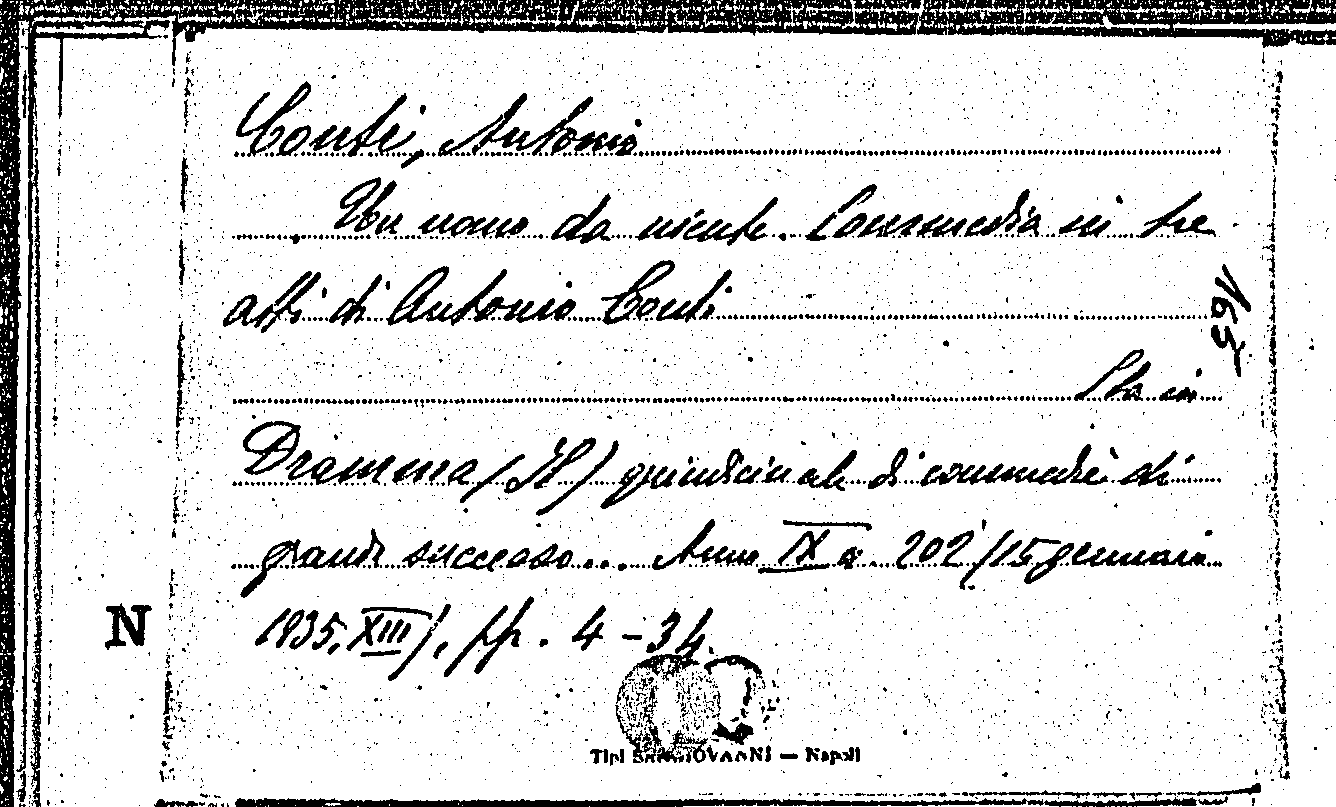 Conti, Antonio
Un uomo da niente. Commedia in tre
atti di Antonio Conti
165
Sta in
Dramma (Il) quindicinale di commedie di
grande successo... Anno IX n. 202 (15 gennaio
N
1935, XIII), pp. 4-34.
Tipi SANGIOVANNI — Napoli